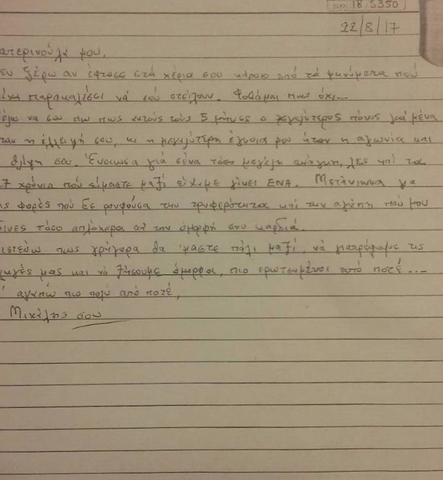 18:5350
22/8/17
ατερινούλα μου,
ξέρω αν έφτασε στα χέρια σου κάποιο από τα μηνύματα που
παρακαλέσει να σου στείλουν. Φοβάμαι πως όχι...
να σου πω πως αυτούς τους 5 μήνες ο μεγαλύτερος πόνος για μένα
η έλλειψή σου, κι η μεγαλύτερη έγνοια μου ήταν η αγωνία και
θλίψη σου. Ένοιωσα για σένα τόσο μεγάλη αγάπη, λες και τα
7 χρόνια που είμαστε μαζί είχαμε γίνει ΕΝΑ. Μετάνιωσα για
ς φορές που δε ρουφούσα την τρυφερότητα και την αγάπη που μου
δινες τόσο απλόχερα απ' την όμορφή σου καρδιά.
πως γρήγορα θα 'μαστε πάλι μαζί, να γιατρέψουμε τις
πληγές μας και να ζήσουμε όμορφοι, πιο ερωτευμένοι από ποτέ...
αγαπώ πιο πολύ από ποτέ,
Μιχάλης σου